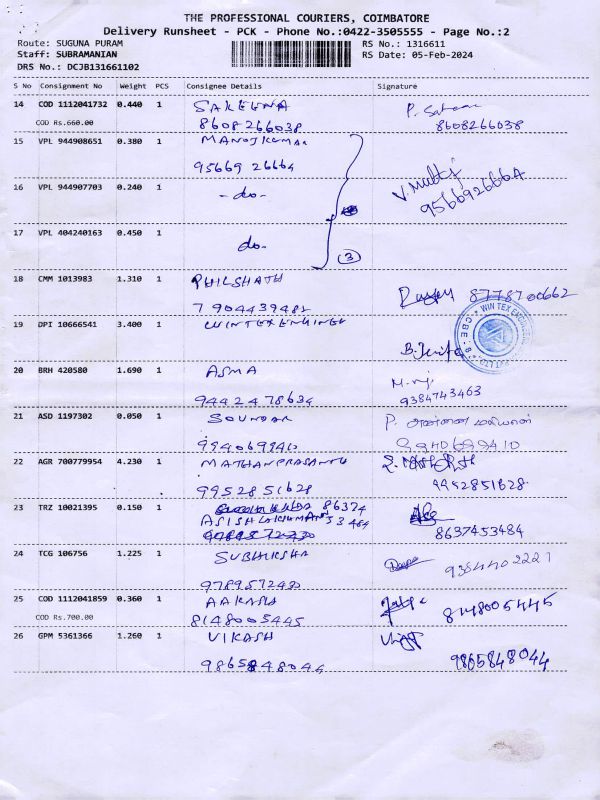 THE PROFESSIONAL COURIERS, COIMBATORE
Delivery Runsheet - PCK - Phone No.:0422-3505555 - Page No.:2
Route: SUGUNA PURAM
RS No.: 1316611
Staff: SUBRAMANIAN
RS Date: 05-Feb-2024
DRS No.: DCJB131661102
S No Consignment No Weight PCS Consignee Details Signature
14 COD 1112041732 0.440 1 SAKEENA
COD Rs.660.00 8608266038 8608266038
15 VPL 944908651 0.380 1 MANOJKUMAR
95669 26664
16 VPL 944907703 0.240 1 -do-
9566926664
17 VPL 404240163 0.450 1 do-
3
18 CMM 1013983 1.310 1 PHILSHATH
7904439482 8778700662
19 DPI 10666541 3.400 1 WINTEX ENGINEE
WIN TEX ENGINEE
CBE - 8
20 BRH 420580 1.690 1 ASMA
9442478634 9384743463
21 ASD 1197302 0.050 1 SOUNDAR
9940699410 9940699410
22 AGR 700779954 4.230 1 MATHANPRASANTH
9952851628 9952851628
23 TRZ 10021395 0.150 1 86374
ASISH LAKHMANN 53484
8637453484
24 TCG 106756 1.225 1 SUBHIKSHA
9789572430 9384402221
25 COD 1112041859 0.360 1 AAKASH
COD Rs.700.00 8148005445 8148005445
26 GPM 5361366 1.260 1 VIKASH
9865848044 9865848044